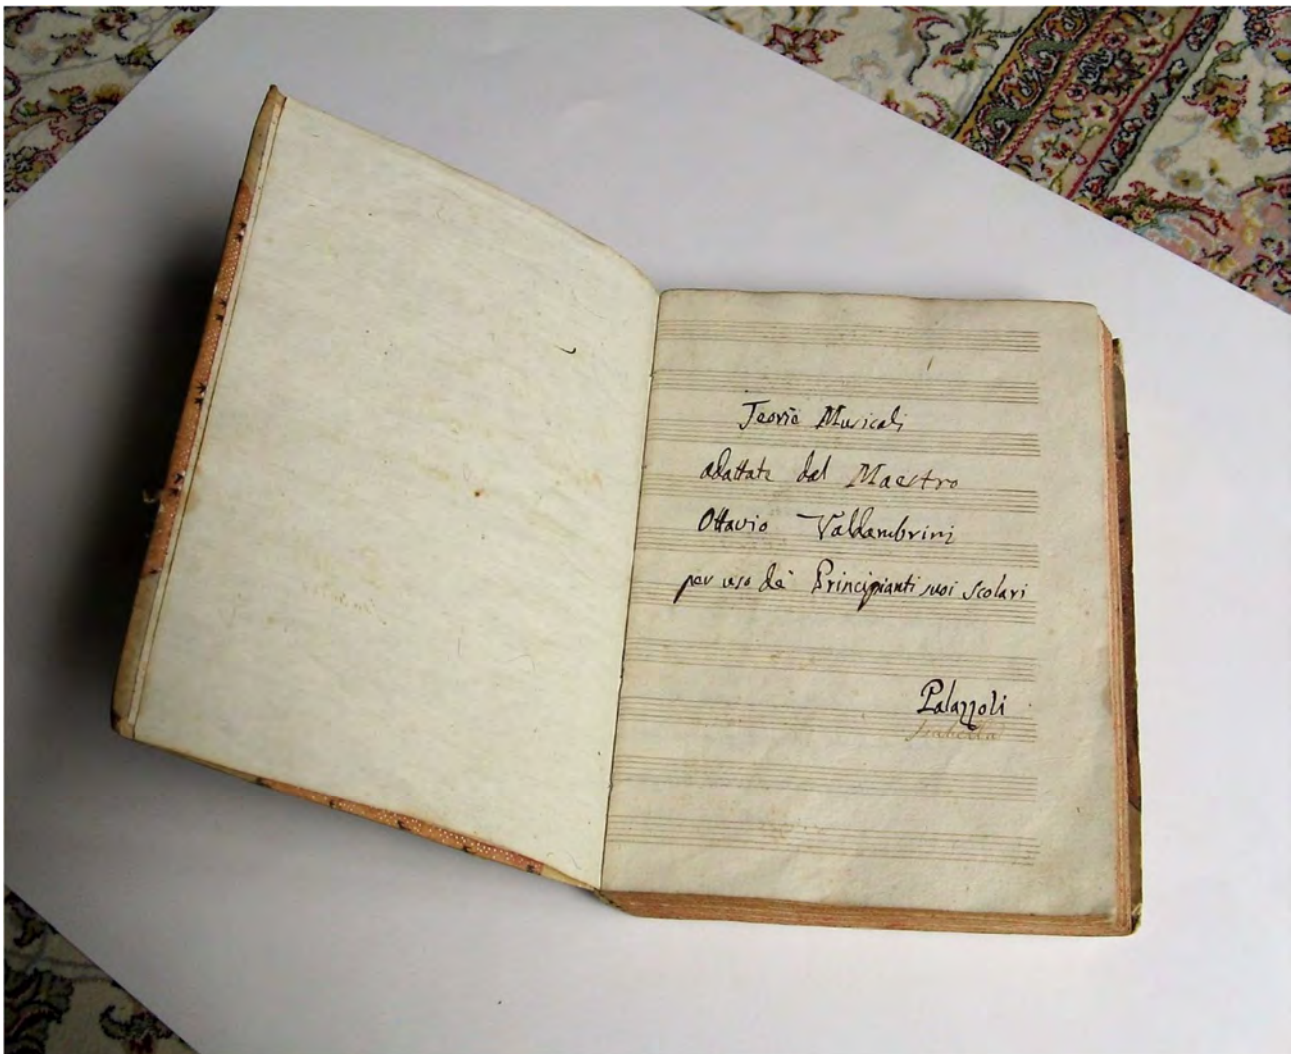 Teorie Musicali
adattate dal Maestro
Ottavio Valdambrini
per uso de' Principianti suoi Scolari
Palazzoli
Isabella